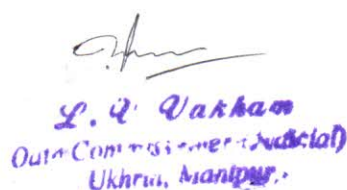 L. V Vakham
Oath Commissioner (Judicial)
Ukhrul, Manipur.